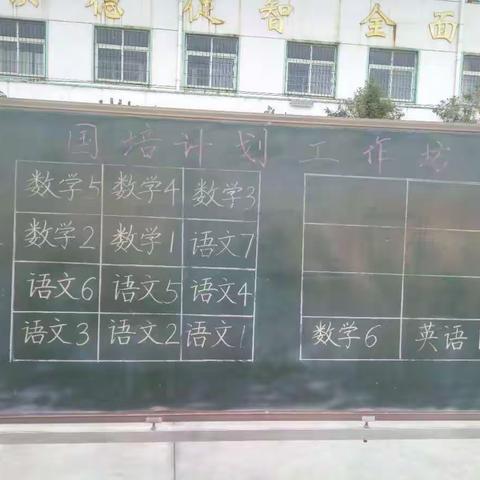 稳促智全面
国培计划工作坊
数学5 数学4 数学3
数学2 数学1 语文7
语文6 语文5 语文4
语文3 语文2 语文1 数学6 英语1